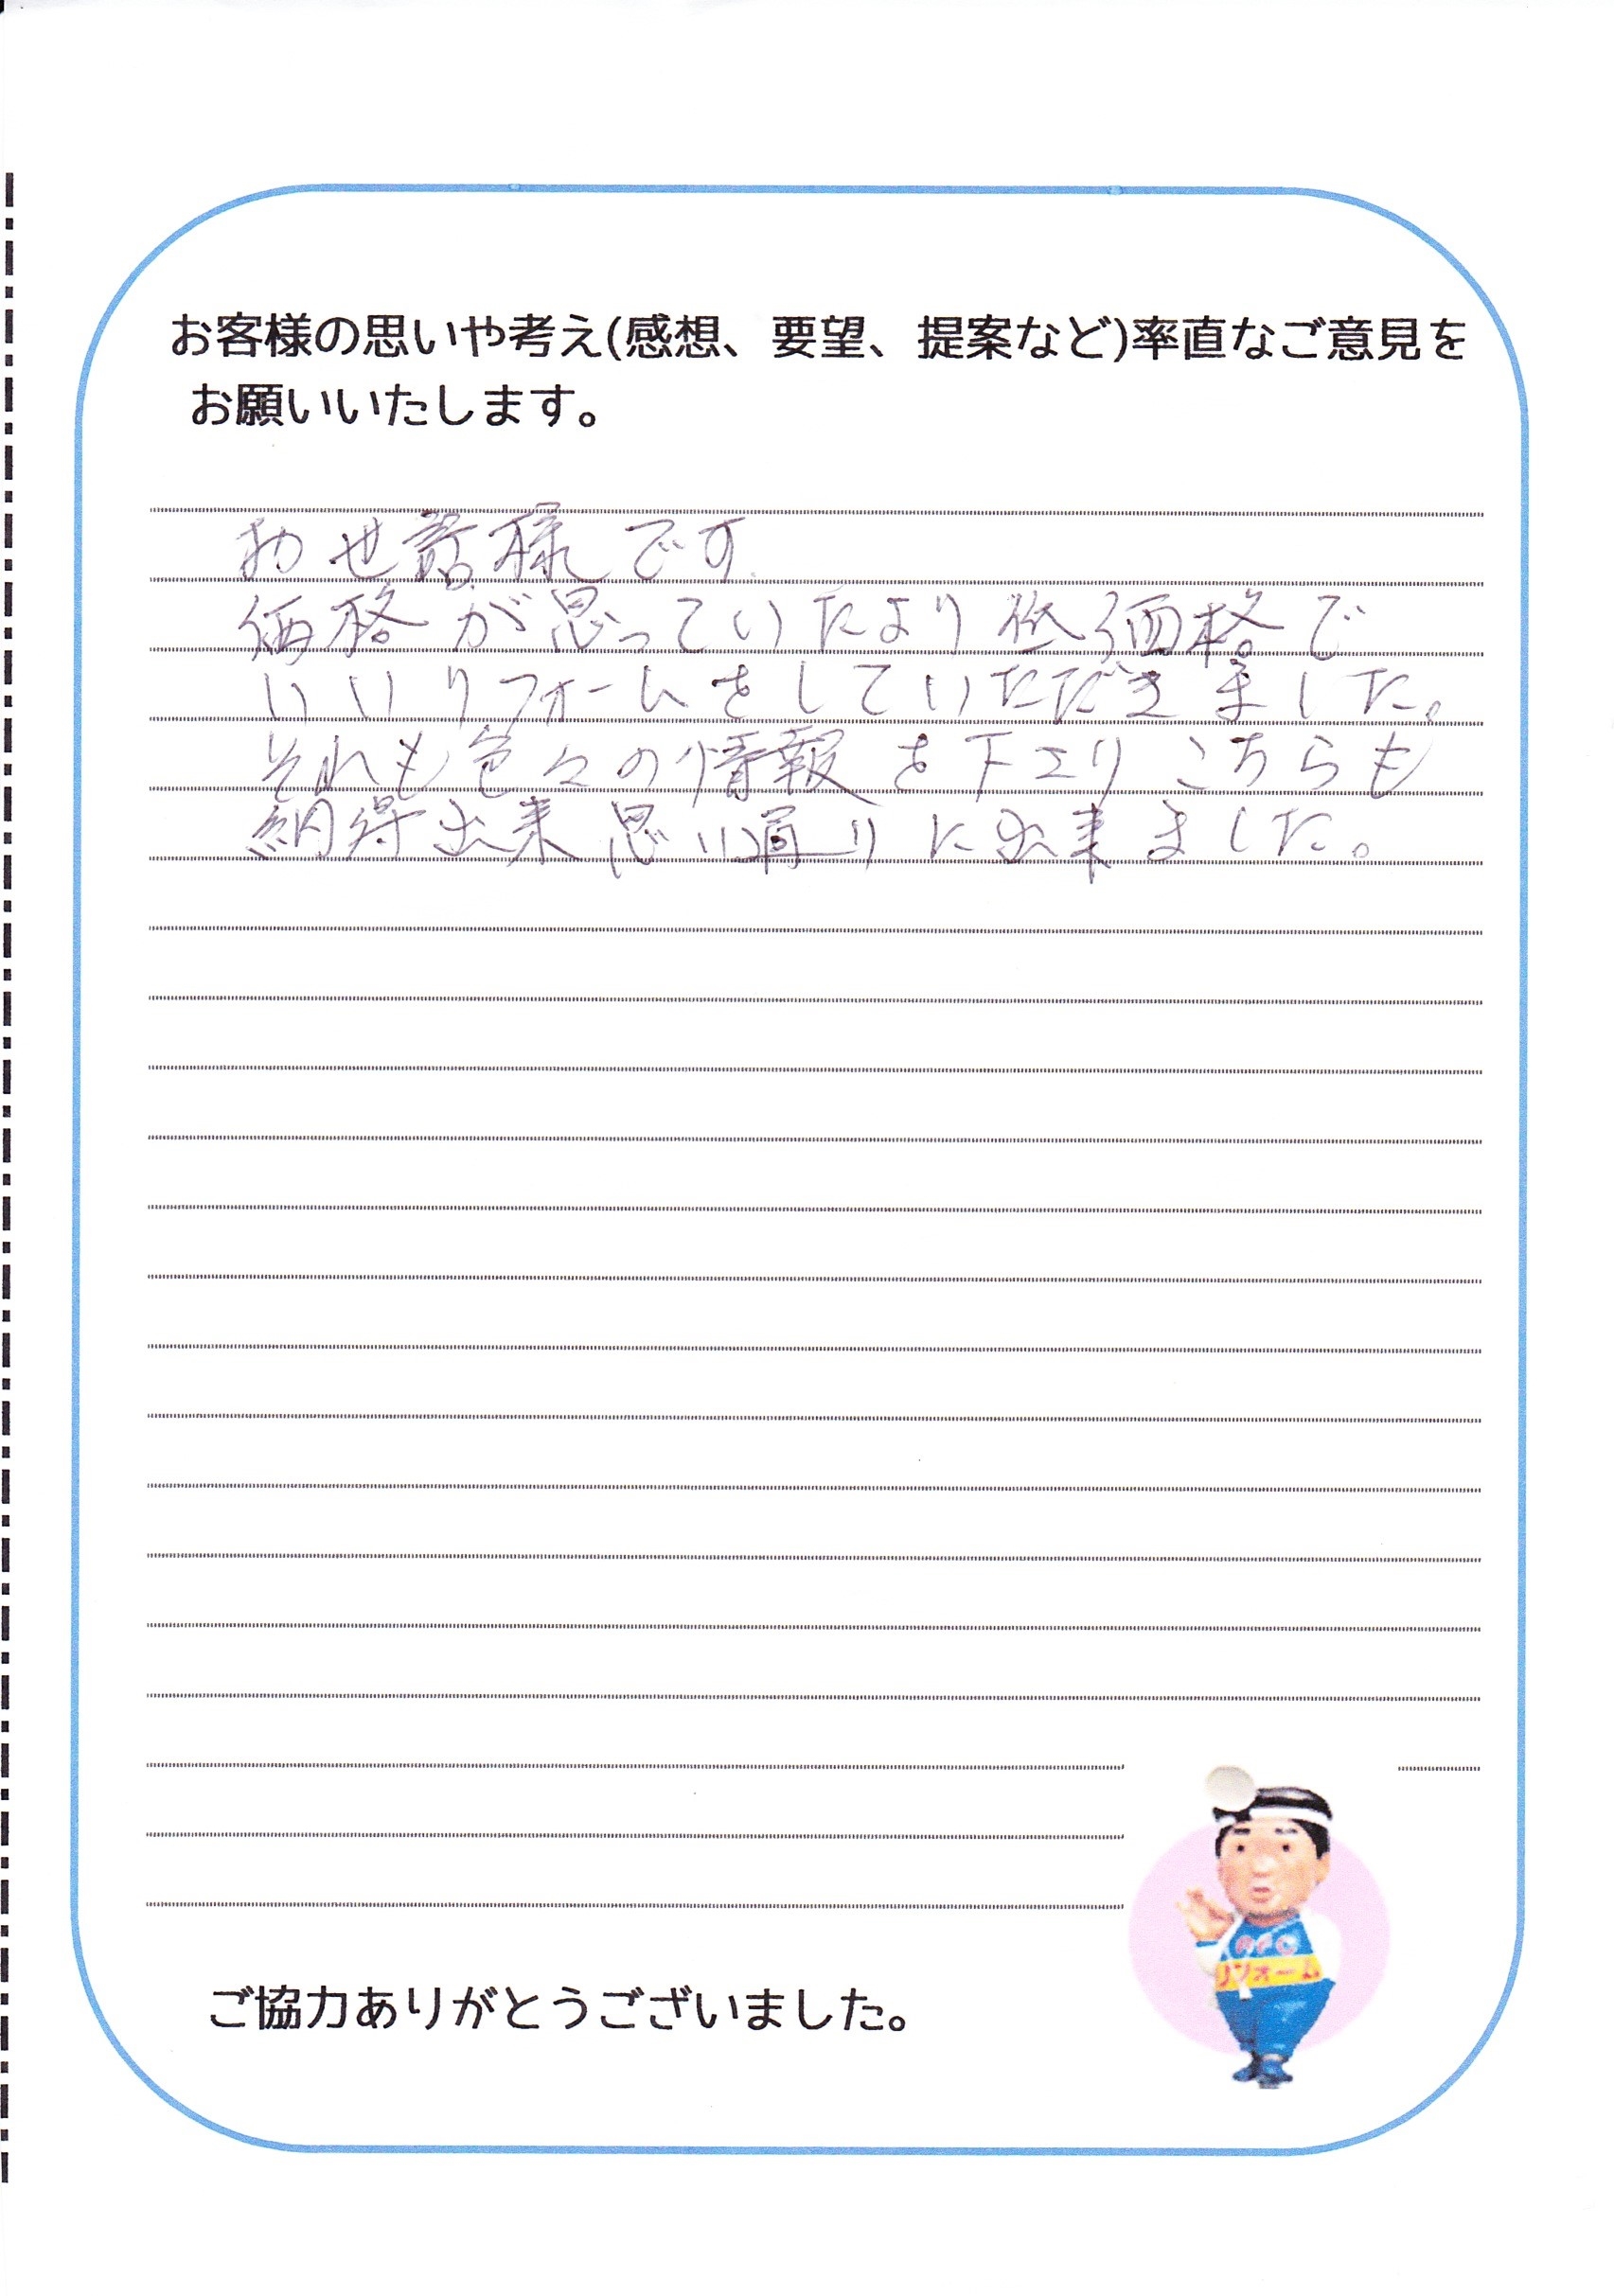 お客様の思いや考え(感想、要望、提案など)率直なご意見を
お願いいたします。
お世話様です
価格が思っていたより低価格で
いいリフォームをしていただきました。
それも色々の情報を下さりこちらも
納得出来思い通りに出来ました。
リフォーム
ご協力ありがとうございました。